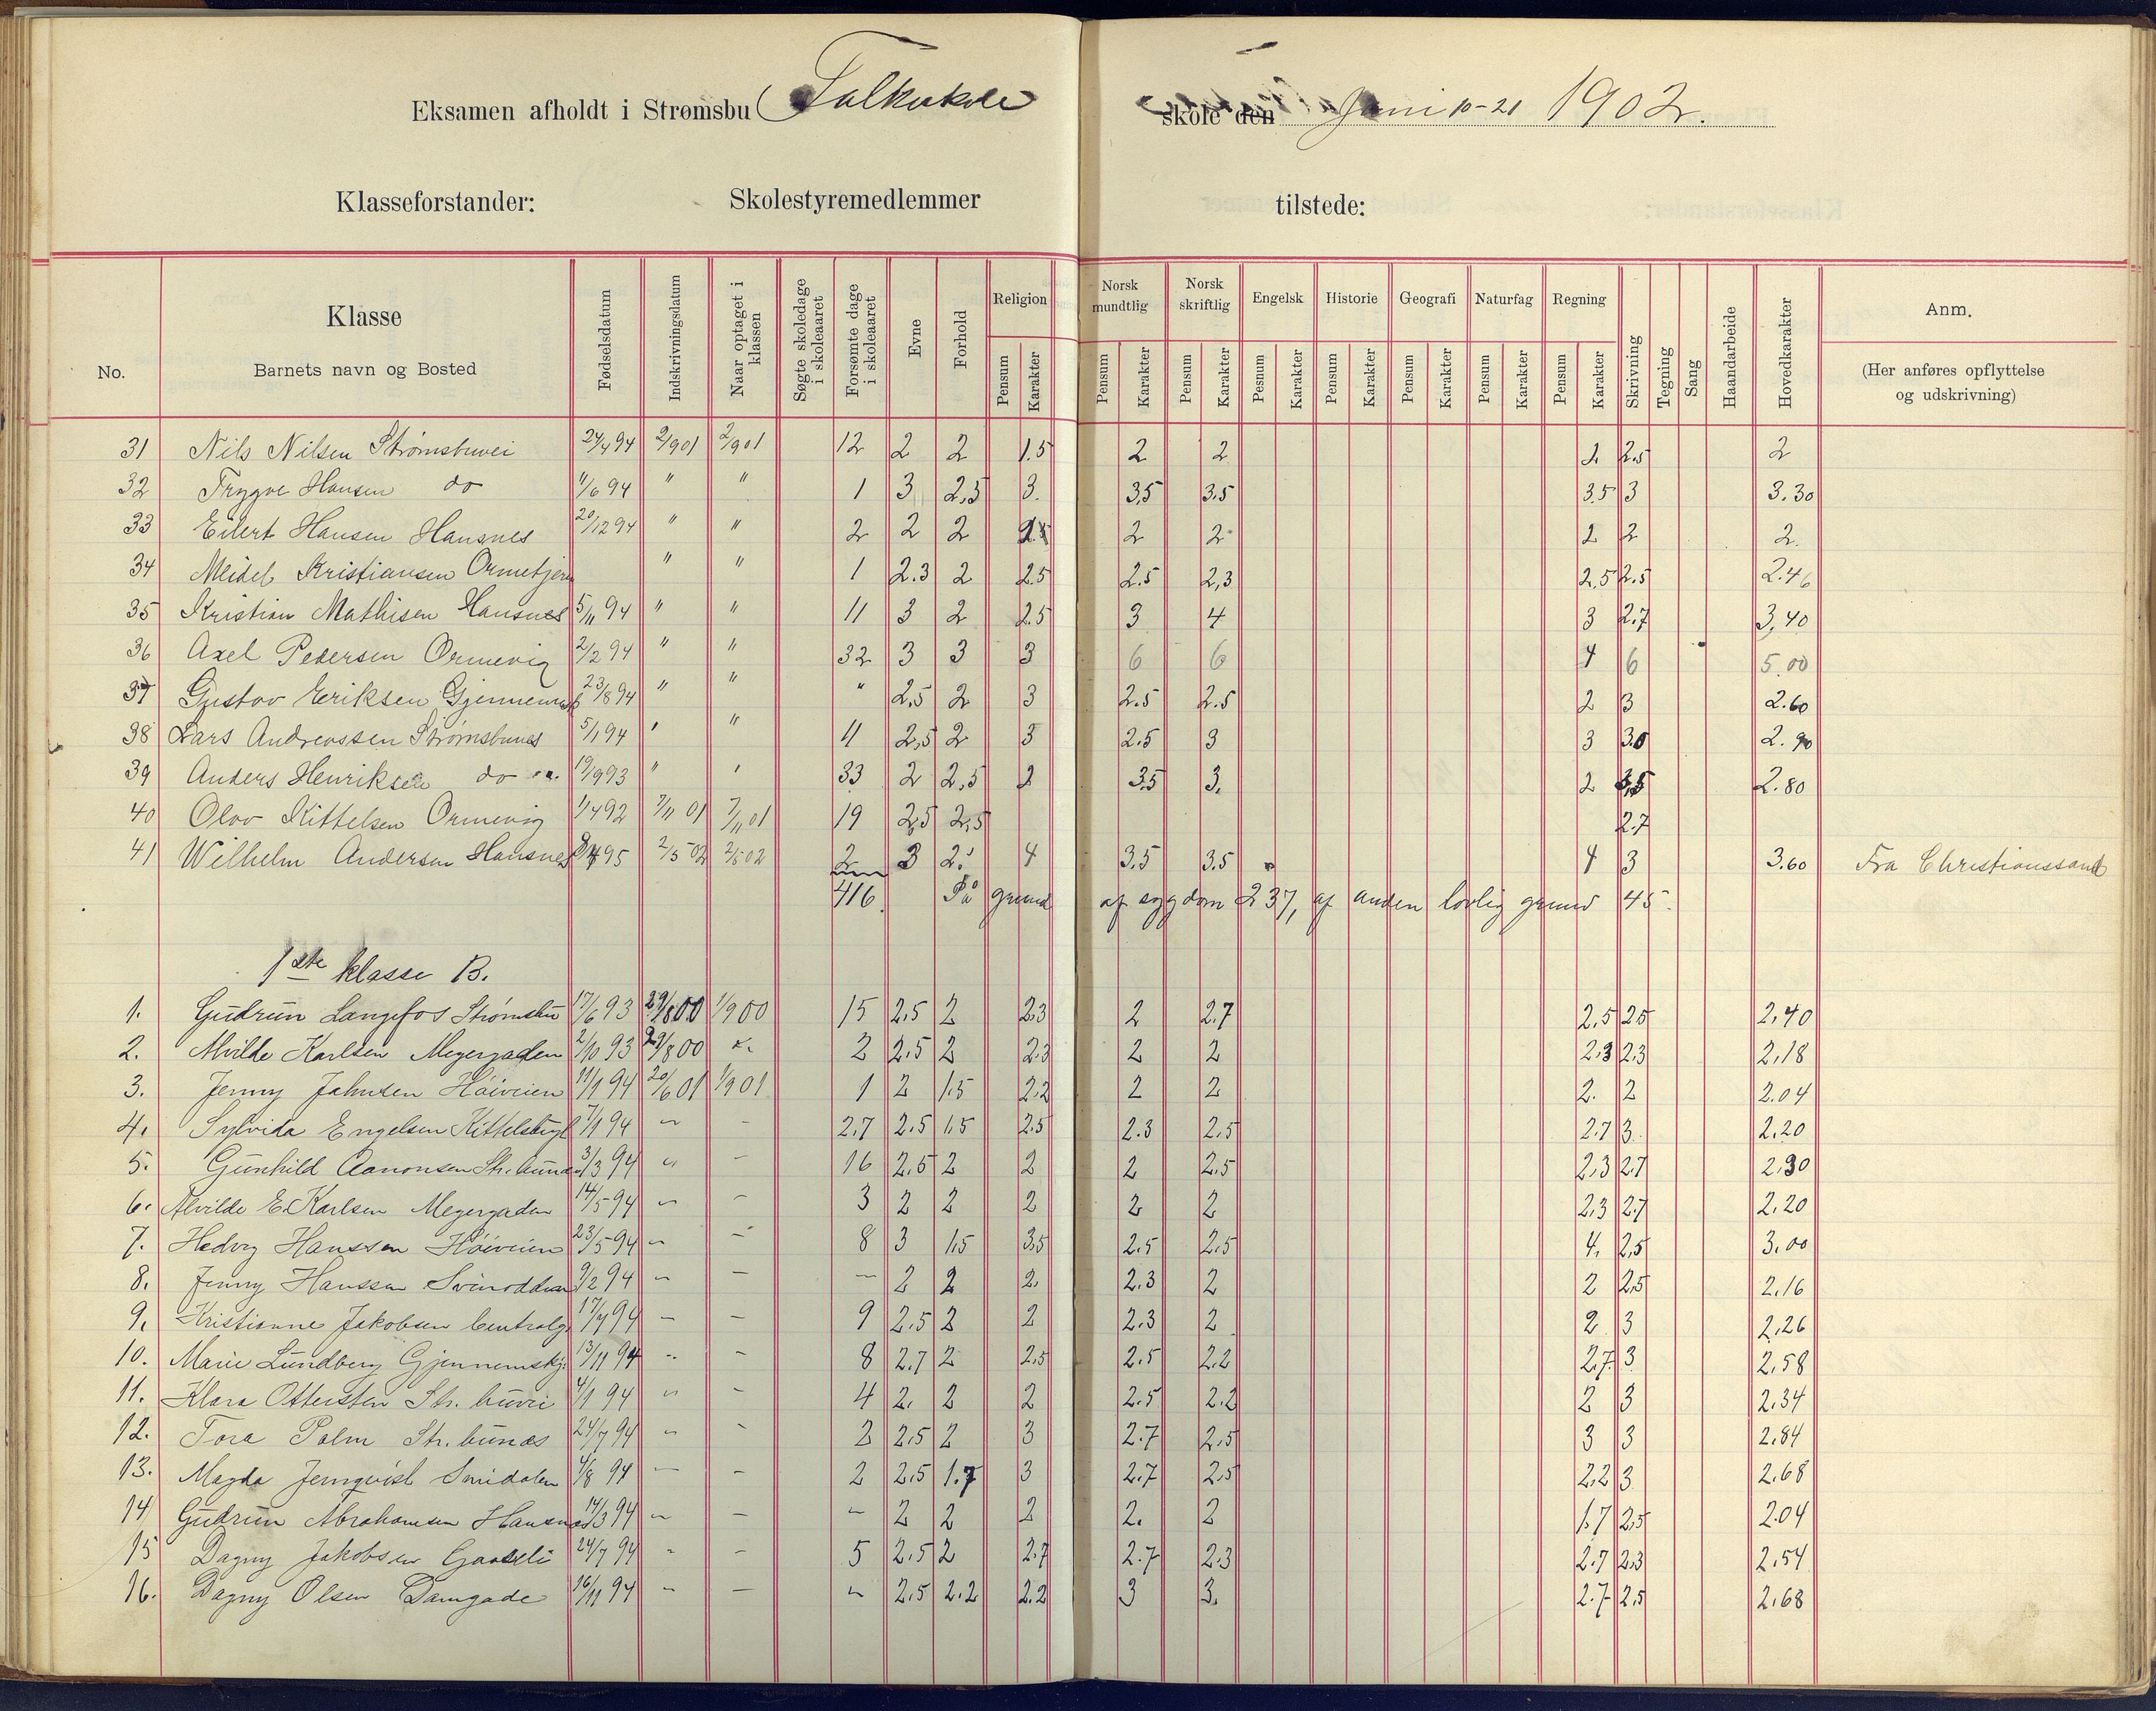 Eksamen afholdt i Strømsbu Folkeskole skole den Juni 10-21 1902.
Klasseforstander: Skolestyremedlemmer tilstede:
No. Klasse Barnets navn og Bosted Fødselsdatum Indskrivningsdatum Naar optaget i klassen Søgte skoledage i skoleaaret Forsømte dage i skoleaaret Evne Forhold Religion Pensum Karakter Norsk mundtlig Pensum Karakter Norsk skriftlig Pensum Karakter Engelsk Pesnum Karakter Historie Pensum Karakter Geografi Pensum Karakter Naturfag Pensum Karakter Regning Pensum Karakter Skrivning Tegning Sang Haandarbeide Hovedkarakter Anm. (Her anføres opflyttelse og udskrivning)
31 Nils Nilsen Strømsbuvei 24/4 94 2/9 01 2/9 01 12 2 2 1.5 2 2 2 2.5 2
32 Trygve Hansen do 11/6 94 " " 1 3 2,5 3. 3.5 3.5 3.5 3 3.30
33 Eilert Hansen Hansnes 20/12 94 " " 2 2 2 2 2 2 2 2.
34 Meidel Kristiansen " " 1 2.3 2 2.5 2.5 2,3 2,5 2.5 2.46
35 Kristian Mathisen Hansnes 5/11 94 " " 11 3 2 2.5 3 4 3 2.7 3,40
36 Axel Pedersen Ormevig 2/2 94 " " 32 3 3 3 6 6 4 6 5.00
37 Gustav Eriksen 23/8 94 " " " 2,5 2 3 2.5 2.5 2 3 2.60
38 Lars Andreassen Strømsbunes 5/1 94 " " 11 2,5 2 3 2.5 3 3 3.0 2.90
39 Anders Henriksen do 19/9 93 " " 33 2 2,5 2 3.5 3. 2 3,5 2.80
40 Olav Kittelsen Ormevig 1/4 92 7/11 01 7/11 01 19 2,5 2,5 2.7
41 Wilhelm Andersen Hansnes 95 2/5 02 2/5 02 2 3 2.5 4 3.5 3.5 4 3 3.60 Fra Christianssand
416. På grund af sygdom 237, af anden lovlig grund 45.
1ste klasse B.
1. Gudrun Langefos Strømsbu 17/6 93 29/8 00 1/9 00 15 2,5 2 2,3 2 2.7 2,5 2,5 2,40
2. Alvilde Karlsen Meyergaden 2/10 93 29/8 00 2 2,5 2 2.3 2 2 2,3 2,3 2,18
3. Jenny Johnsen Høiveien 11/1 94 20/6 01 1/9 01 1 2 1.5 2,2 2 2 2. 2 2.04
4. Sylvida Engelsen 7/1 94 " - 27 2.5 1.5 2.5 2.3 2,5 2.7 3. 2,20
5. Gunhild Aanonsen 3/3 94 " - 16 2,5 2 2 2 2.5 2,3 2.7 2,30
6. Alvilde E. Karlsen Meyergaden 14/5 94 " - 3 2 2 2 2 2 2,3 2.7 2,20
7. Hedvig Hanssen Høiveien 23/5 94 " - 8 3 1.5 3.5 2.5 2.5 4. 2,5 3,00
8. Jenny Hanssen 9/2 94 " - - 2 2 2. 2.3 2 2 2.5 2,16
9. Kristianne Jakobsen Centralg. 17/7 94 - - 9 2.5 2 2 2.3 2 2 3 2,26
10. Marie Lundberg Gjennemskj. 13/11 94 " - 8 2.7 2 2,5 2.5 2.2 2.7 3 2,58
11. Klara Ottersten Str. buvei 4/1 94 " - 4 2. 2 2 2.5 2.2 2 3 2,34
12. Tora Palm Str. bunes 24/7 94 " - 2 2,5 2 3 2.7 2,5 3 3 2.84
13. Magda Jernqvist Smidalen 4/8 94 - - 2 2,5 1.7 3 2.7 2.5 2,2 3 2,68
14 Gudrun Abrahamsen Hansnes 14/3 94 " - - 2 2 2 2. 2 1.7 2,5 2.04
15 Dagny Jakobsen 24/7 94 " - 5 2.5 2 2.7 2.7 2.3 2.7 2,3 2,54
16. Dagny Olsen Damgade 16/11 94 " - " 2,5 2.2 2.2 3 3. 2.7 2,5 2,68